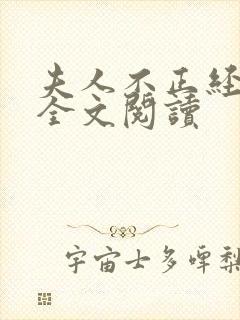 夫人不正经
全文閱讀
宇宙士多啤梨